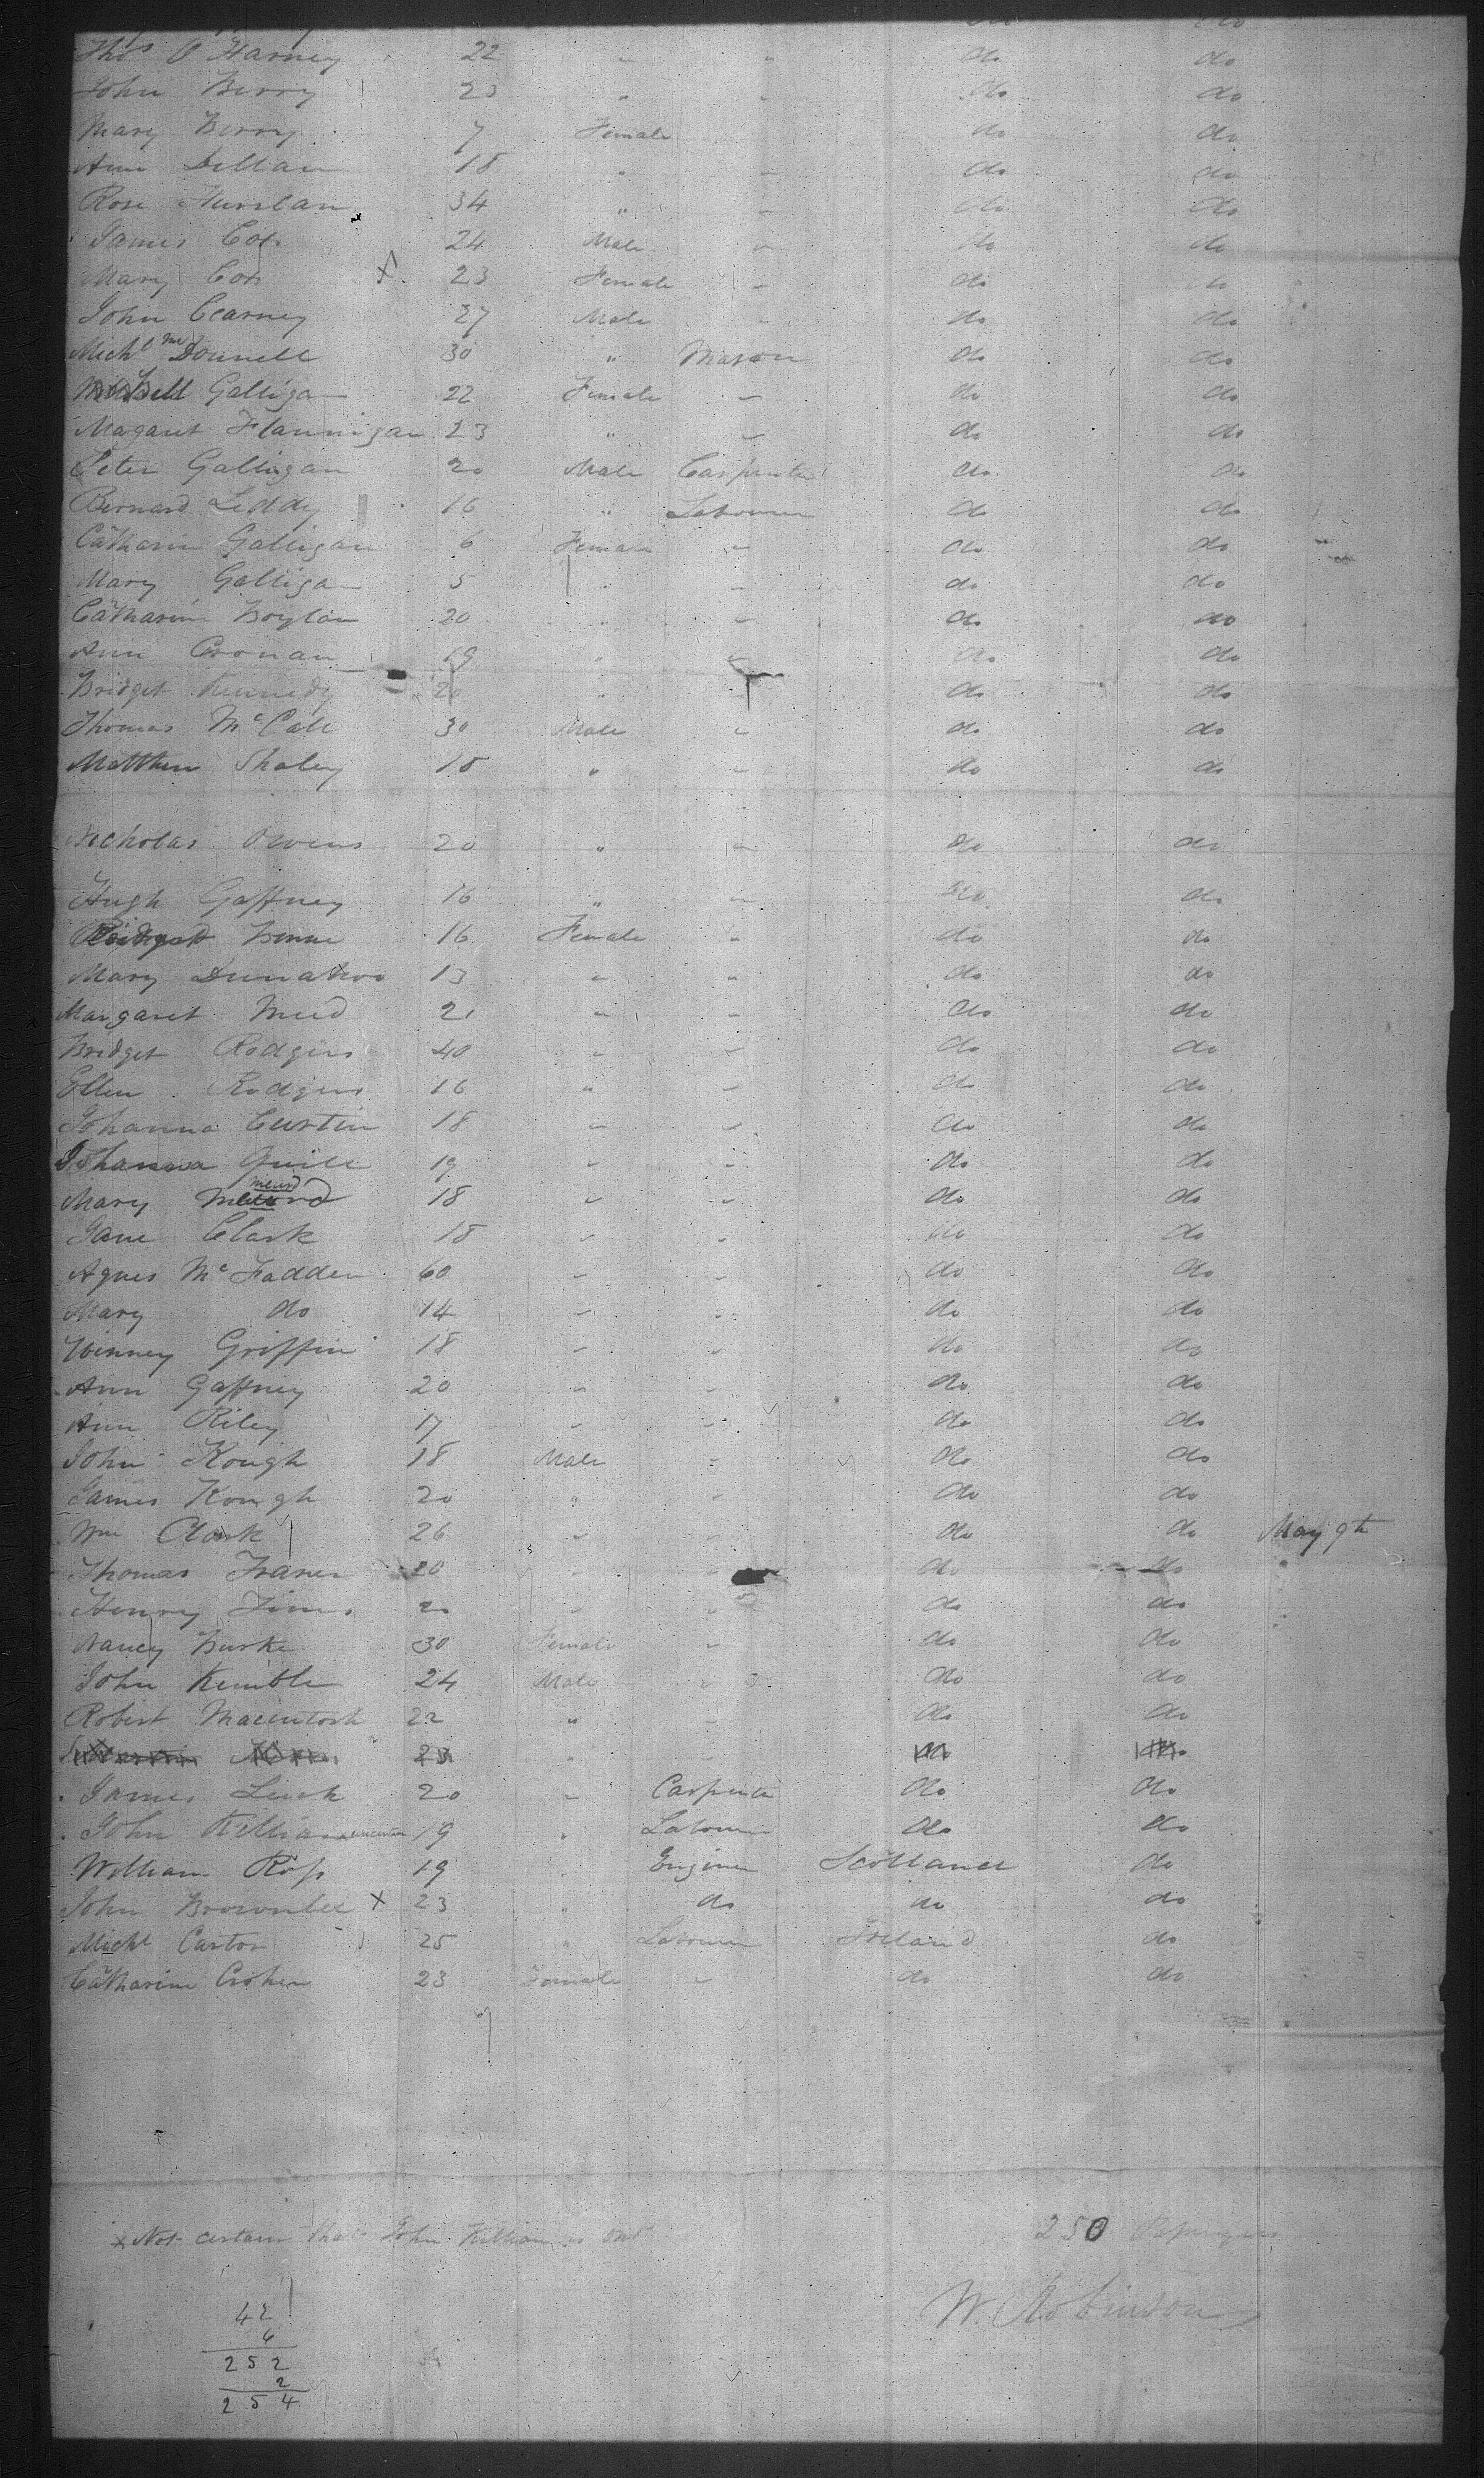 do do
Thos O Harney 22 " " do do
John Berry 23 " " do do
Mary Berry 7 Female do do
Ann Dillan 18 " " do do
Rose 34 " " do do
James Cox 24 Male " do do
Mary Cox X 23 Female " do do
John Cearney 27 Male " do do
Michl McDonnell 30 " Mason do do
Galligan 22 Female " do do
Magaret Flannigan 23 " " do do
Peter Galligan 20 Male Carpenter do do
Bernard Leddy 16 " Labourer do do
Catharin Galligan 6 Female " do do
Mary Galligan 5 " " do do
Catharine Boylan 20 " " do do
Ann Cronan 19 " " do do
Bridget Kennedy 20 " " do do
Thomas McCall 30 Male " do do
Matthew Shaley 18 " " do do
Nicholas Owens 20 " " do do
Hugh Gaffney 16 " " do do
16 Female " do do
Mary Dunahoo 13 " " do do
Margaret Meed 21 " " do do
Bridget Rodgers 40 " " do do
Ellen Rodgers 16 " " do do
Johanna Curtin 18 " " do do
Johanna Quill 19 " " do do
Mary 18 " " do do
Jane Clark 18 " " do do
Agnes McFadden 60 " " do do
Mary do 14 " " do do
Winney Griffin 18 " " do do
Ann Gaffney 20 " " do do
Ann Riley 17 " " do do
John Kough 18 Male " do do
James Kough 20 " " do do
Wm Clark 26 " " do do May 9th
Thomas 20 " " do do
Henry 20 " " do do
Nancy Burke 30 Female " do do
John Kemble 24 Male " do do
Robert Macentosh 22 " " do do
23 " " do do
James Leish 20 " Carpenter do do
John Killian 19 " Labourer do do
William Ross 19 " Engineer Scotland do
John Brownlee X 23 " do do do
Michl Carton 25 " Labourer Ireland do
Catharine Croken 23 Female " do do
x Not certain that John Killian is
250 Passengers
W. Robinson
42
6
252
2
254